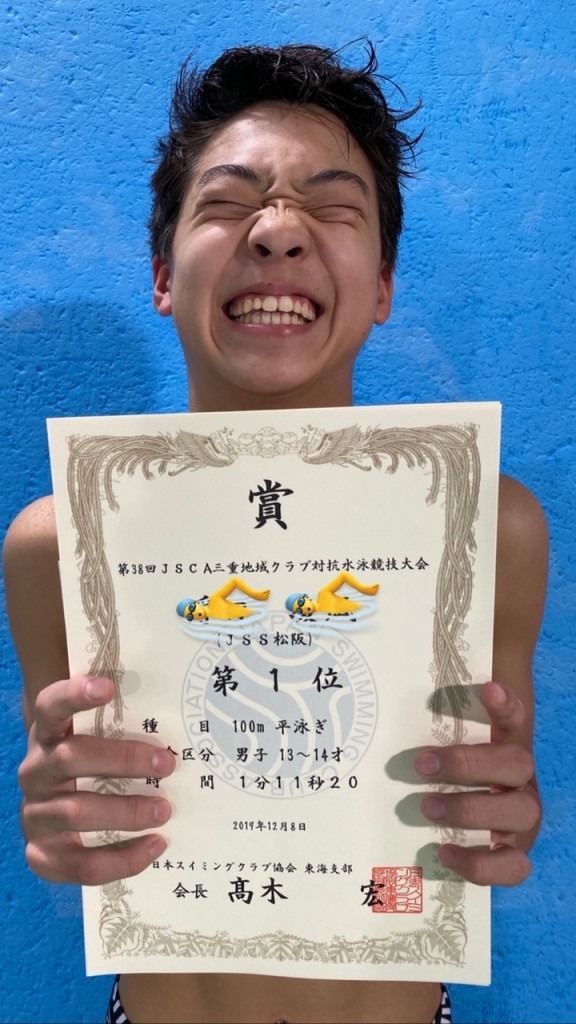 賞
第38回JSCA三重地域クラブ対抗水泳競技大会
(JSS松阪)
第 1 位
種 目 100m 平泳ぎ
区分 男子 13〜14才
時 間 1分11秒20
2019年12月8日
日本スイミングクラブ協会 東海支部
会長 髙木 宏